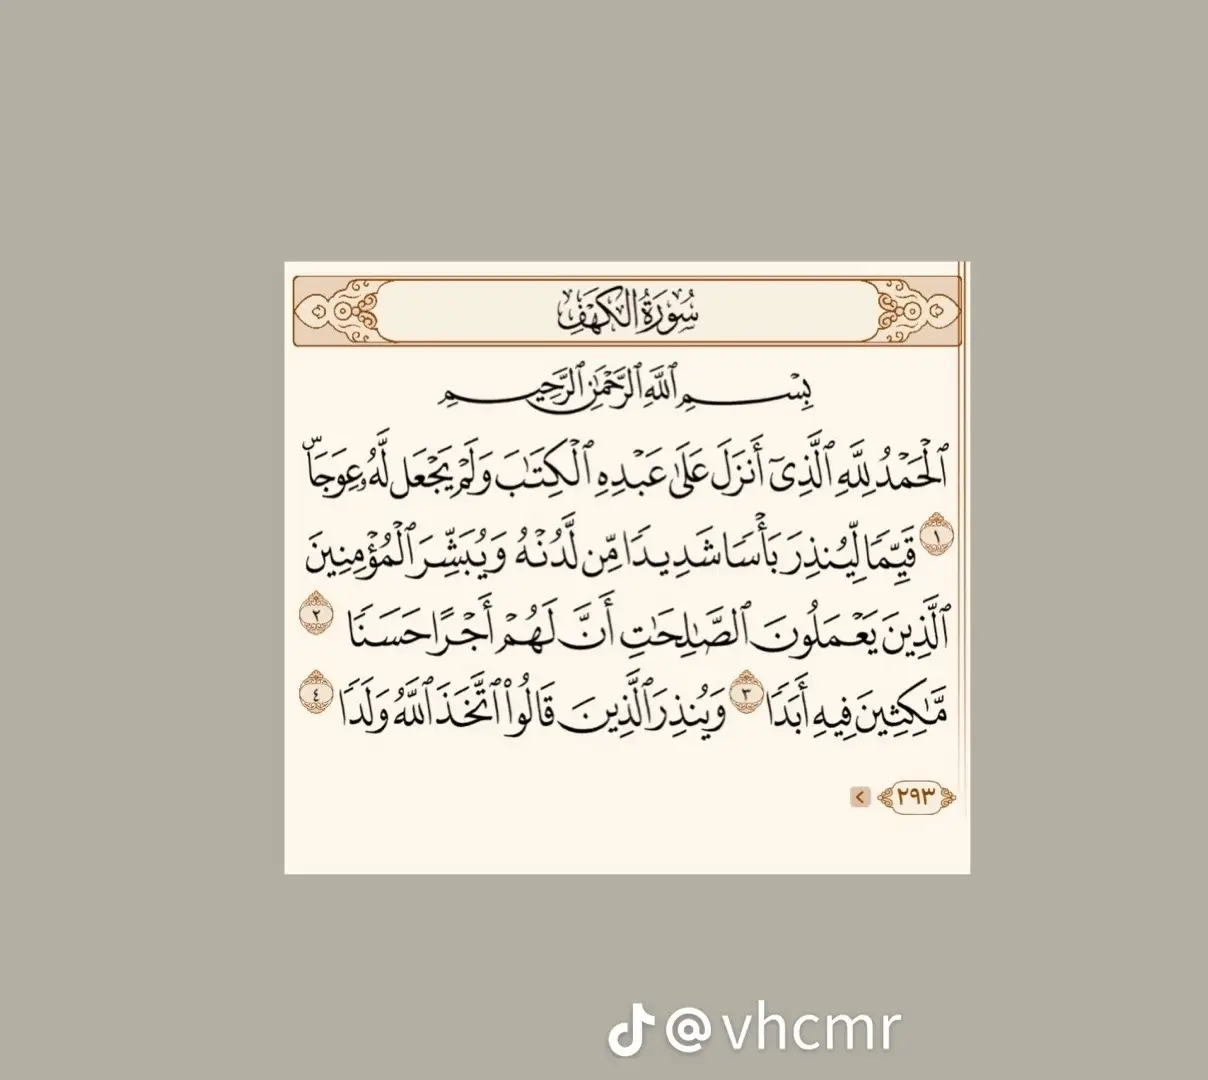 سُورَةُ الكَهۡفِ
بِسۡمِ ٱللَّهِ ٱلرَّحۡمَٰنِ ٱلرَّحِيمِ
ٱلۡحَمۡدُ لِلَّهِ ٱلَّذِيٓ أَنزَلَ عَلَىٰ عَبۡدِهِ ٱلۡكِتَٰبَ وَلَمۡ يَجۡعَل لَّهُۥ عِوَجَاۜ
١ قَيِّمٗا لِّيُنذِرَ بَأۡسٗا شَدِيدٗا مِّن لَّدُنۡهُ وَيُبَشِّرَ ٱلۡمُؤۡمِنِينَ
ٱلَّذِينَ يَعۡمَلُونَ ٱلصَّٰلِحَٰتِ أَنَّ لَهُمۡ أَجۡرًا حَسَنٗا ٢
مَّٰكِثِينَ فِيهِ أَبَدٗا ٣ وَيُنذِرَ ٱلَّذِينَ قَالُواْ ٱتَّخَذَ ٱللَّهُ وَلَدٗا ٤
٢٩٣ >
@vhcmr